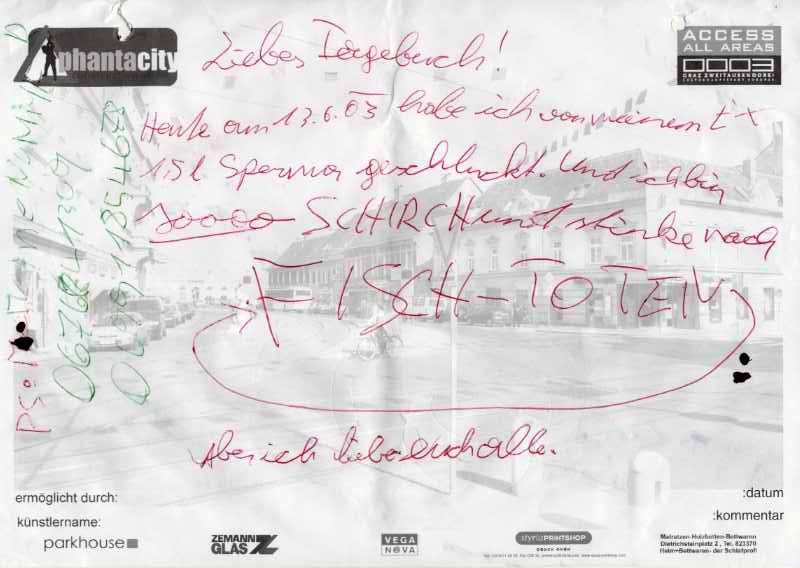 phantacity
ACCESS
ALL AREAS
0003
GRAZ ZWEITAUSENDDREI
Liebes Tagebuch!
Heute am 13.6.03 habe ich von meinem Ex
1,5 l Sperma geschluckt. Und ich bin
soooo SCHIRCH und stinke nach
FISCH-TOTEN
Aber ich liebe euch alle.
PS:
ermöglicht durch:
künstlername:
parkhouse
ZEMANN
GLAS
VEGA
NOVA
styriaPRINTSHOP
:datum
:kommentar
Matratzen-Holzbetten-Bettwaren
Dietrichsteinplatz 2 , Tel. 823370
Heim+Bettwaren- der Schlafprofi